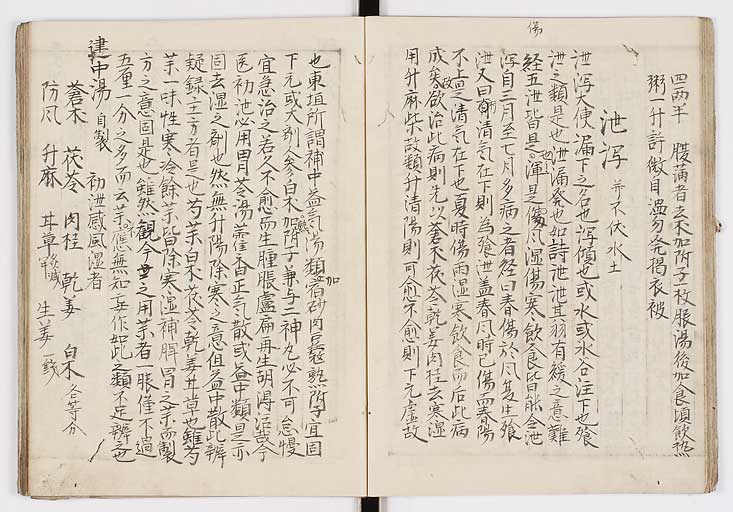 傷
四兩半 腹満者去朮加附子一枚服湯後加食頃飲熱
粥一升許微自温勿発掲衣被
泄瀉 并不伏水土
泄瀉大便漏下之名也瀉傾也或水或水谷注下也飱
泄之類是也泄漏発也如詩泄泄其羽有緩之意難
経五泄皆是渾是傷風湿傷寒飲食皆能令泄
瀉自三月至七月多病之者経曰春傷於風夏生飱
泄又曰清気在下則為飱泄盖春月時已傷而春陽
不上之清気在下也夏時傷雨湿寒飲食而后此病
成矣故欲治此病則先以蒼朮茯苓乾姜肉桂去寒湿
用升麻柴胡類升清陽則可愈不愈則下元虚故
也東垣所謂補中益気湯類加著砂肉豆蔲熟附子宜固
下元或大剤人参白朮加附子兼与二神丸必不可怠慢
宜急治之若久不愈而生腫脹盧扁再生胡得活哉今
医初泄必用胃苓湯藿香正気散或益中類是亦
固去湿之剤也然無升陽除寒之意但益中散此辨
疑録之方者是也芍茶白朮茯苓乾姜甘草也雖芍
茶一味性寒冷餘茶皆除寒湿補脾胃之茶而製
方之意固是也雖然観今世之用茶者一服僅不過
五厘一分之多而云茶不應無知妄作如此之類不足辨之也
建中湯 自製 初泄感風湿者
蒼朮 茯苓 肉桂 乾姜 白朮 各等分
防風 升麻 甘草 略減 生姜 一銭